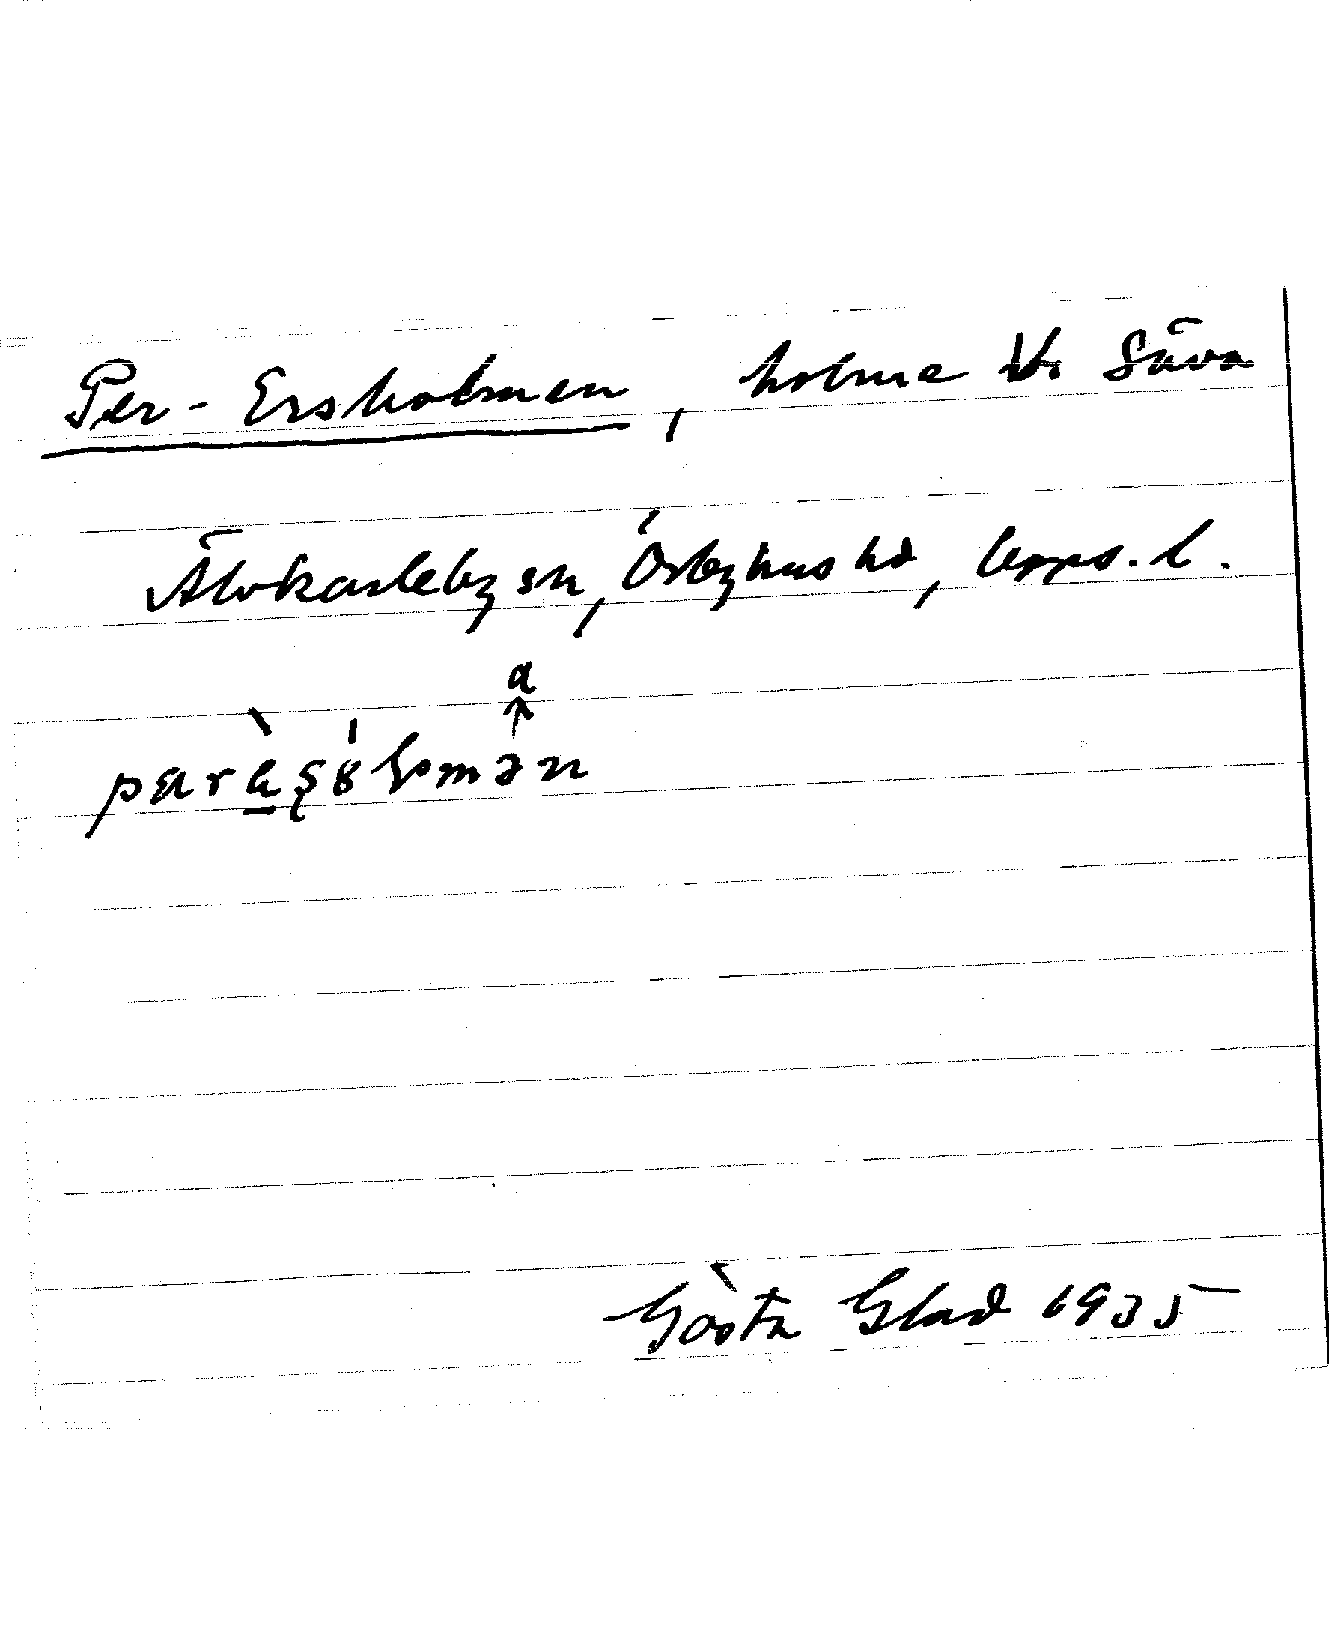 Per-Ersholmen, holme V. Säva
Älvkarleby sn, Örbyhus hd, Upps. l.
a
Gösta Glad 1935